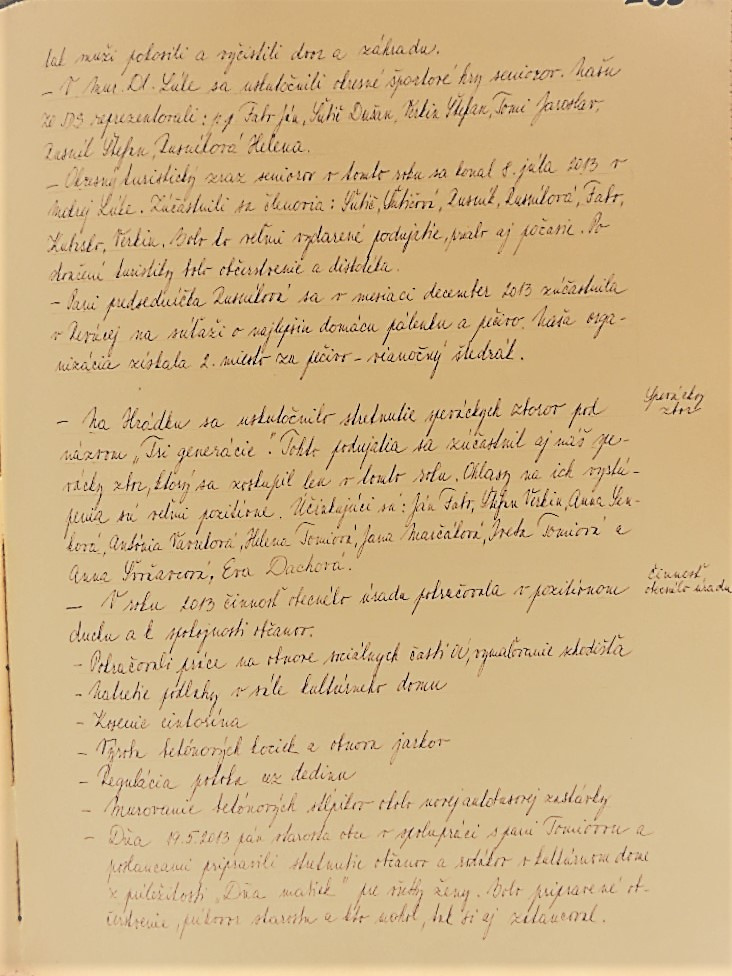 tak muži pokosili a vyčistili dvor a záhradu.
– V Mur. Dl. Lúke sa uskutočnili okresné športové hry seniorov. Našu
ZO JDS reprezentovali: p.p. Fabo Ján, Šutič Dušan, Verkin Štefan, Tomi Jaroslav,
Rusnák Štefan, Rusnáková Helena.
– Okresný turistický zraz seniorov v tomto roku sa konal 8. júla 2013 v
Lúke. Zúčastnili sa členovia: Šutič, Šutičová, Rusnák, Rusnáková, Fabo,
Verkin. Bolo to veľmi vydarené podujatie, prialo aj počasie. Po
skončení turistiky bolo občerstvenie a diskotéka.
– Pani predsedníčka Rusnáková sa v mesiaci december 2013 zúčastnila
v Revúcej na súťaži o najlepšiu domácu pálenku a pečivo. Naša orga-
nizácia získala 2. miesto za pečivo – vianočný štedrák.
– Na Hrádku sa uskutočnilo stretnutie speváckych zborov pod
Spevácky
zbor
názvom „Tri generácie". Tohto podujatia sa zúčastnil aj náš spe-
vácky zbor, ktorý sa zoskupil len v tomto roku. Ohlasy na ich vystú-
penia sú veľmi pozitívne. Účinkujúci sú: Ján Fabo, Štefan Verkin, Anna Šen-
ková, Antónia Vavreková, Helena Tomiová, Jana Marčáková, Iveta Tomiová a
Anna Švoňavcová, Eva Dachová.
– V roku 2013 činnosť obecného úradu pokračovala v pozitívnom
činnosť
obecného úradu
duchu a k spokojnosti občanov.
– Pokračovali práce na obnove sociálnych častí, vymaľovanie schodišťa
– Natretie podlahy v sále kultúrneho domu
– Kosenie cintorína
– Výroba betónových kociek a obnova jarkov
– Regulácia potoka cez dedinu
– Murovanie betónových stĺpikov okolo novej autobusovej zastávky
– Dňa 19.5.2013 pán starosta obce v spolupráci s pani Tomiovou a
poslancami pripravili stretnutie občanov a rodákov v kultúrnom dome
z príležitosti „Dňa matiek" pre všetky ženy. Bolo pripravené ob-
čerstvenie, príhovor starostu a kto mohol, tak si aj zatancoval.